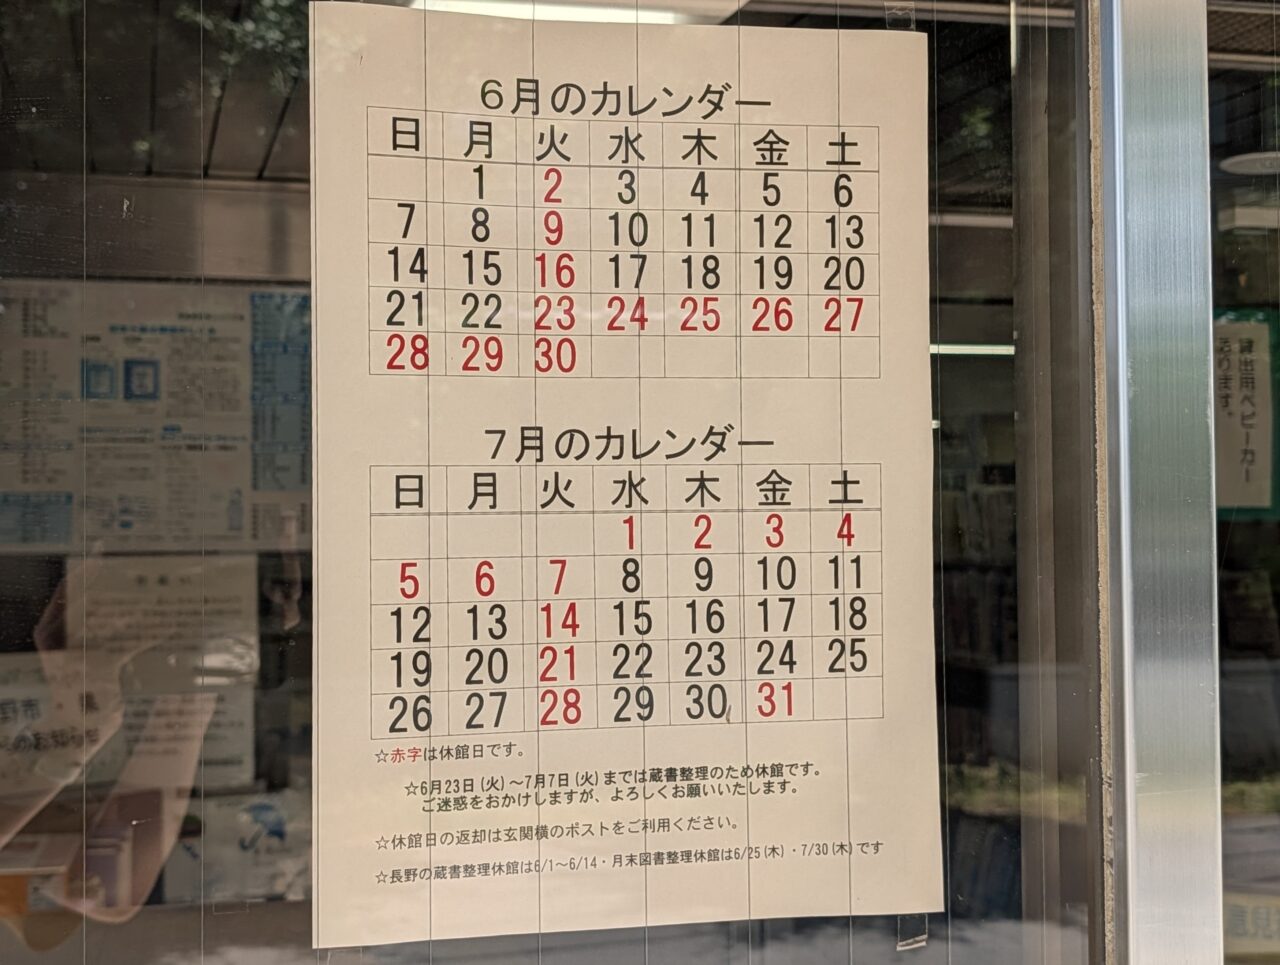 6月のカレンダー
日 月 火 水 木 金 土
1 2 3 4 5 6
7 8 9 10 11 12 13
14 15 16 17 18 19 20
21 22 23 24 25 26 27
28 29 30
7月のカレンダー
日 月 火 水 木 金 土
1 2 3 4
5 6 7 8 9 10 11
12 13 14 15 16 17 18
19 20 21 22 23 24 25
26 27 28 29 30 31
☆赤字は休館日です。
☆6月23日(火)～7月7日(火)までは蔵書整理のため休館です。
ご迷惑をおかけしますが、よろしくお願いいたします。
☆休館日の返却は玄関横のポストをご利用ください。
☆長野の蔵書整理休館は6/1～6/14・月末図書整理休館は6/25(木)・7/30(木)です
貸出用ベビーカー
あります。